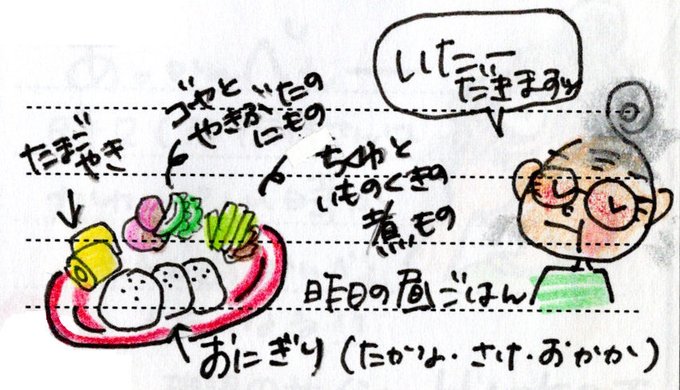 いたー
だきますッ
たまご
やき
ゴヤと
やきぶたの
にもの
ちくわと
いものくきの
煮もの
昨日の昼ごはん
おにぎり(たかな・さけ・おかか)